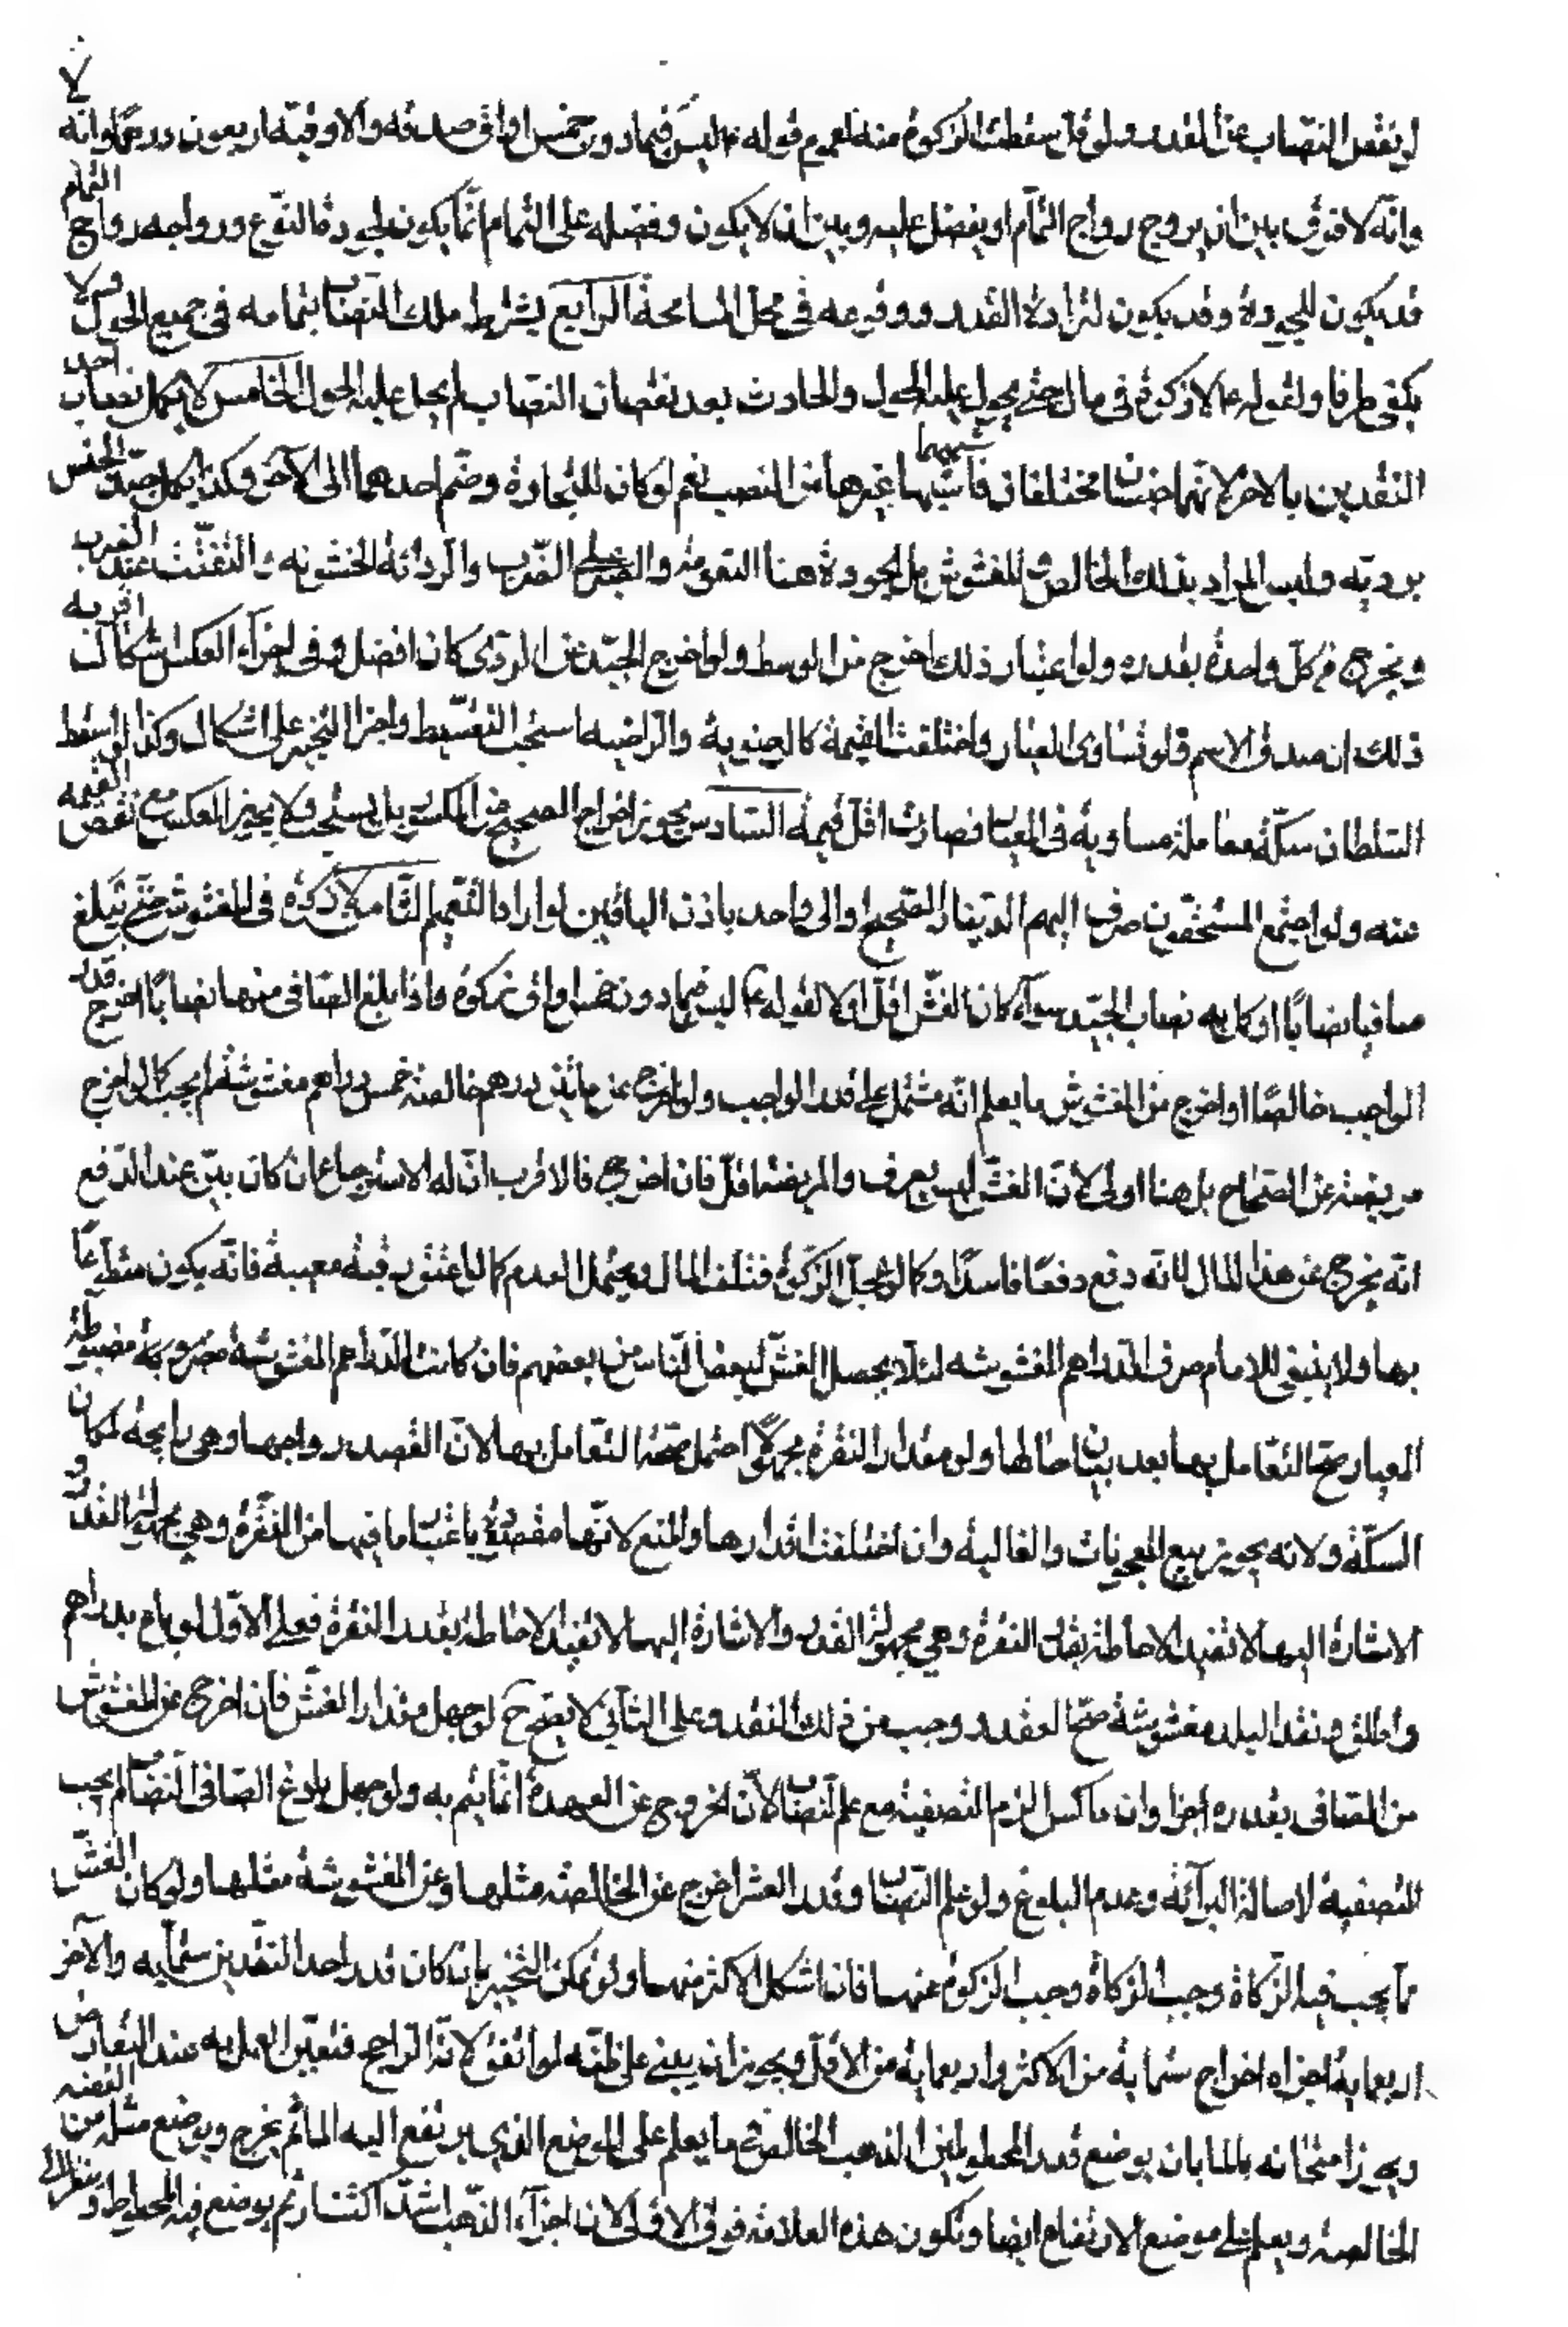 لو نقص النصاب عن المقدر ولو قل سقطت الزكوة منه لعموم قوله ع ليس فيما دون خمس اواق صدقه والاوقيه اربعون درهما وانه لا
وانه لا فرق بين ان يروج رواج التام او يفضل عليه وبين ان لا يكون وفضله على التمام انما يكون لجودة النوع ورواجه رواج التمام
قد يكون للجودة وقد يكون لنزارة القدر ووقوعه فى محل المسامحة الرابع يشترط ملك النصاب بتمامه فى جميع الحول ولا
يكفى طرفاه لقوله ع لا زكوة فى مال حتى يحول عليه الحول والحادث بعد نقصان النصاب لم يحل عليه الحول الخامس لا يكمل نصاب احد
النقدين بالاخر لانهما جنسان مختلفان فاشبها غيرهما من النصب نعم لو كان للتجارة وضم احدهما الى الاخر وكذا يكمل جيد الجنس
برديه وليس المراد بذلك الخالص والمغشوش بل الجودة هنا النعومة والصبر على الضرب والردائة الخشونه والتفتت عند الضرب
ويخرج من كل واحدة بقدره ولو اعتبار ذلك اخرج من الوسط ولو اخرج الجيد عن الردى كان افضل وفى اجزاء العكس اشكال اقربه
ذلك ان صدق الاسم فلو تساوى العيار واختلفت القيمة كالرضوية والراضيه استحب التقسيط واجزا التخيير على اشكال وكذا لو اسقط
السلطان سكة معاملة مساوية فى العيار فصارت اقل قيمة السادس يجوز اخراج الصحيح من المكسور بل يستحب ولا يجوز العكس مع نقص القيمه
عنه ولو اجتمع المستحقون صرف اليهم الدينار الصحيح او الى واحد باذن الباقين لو اراد التعميم الثامن لا زكوة فى المغشوش حتى تبلغ
صافيا نصابا او كمل به نصاب الجيد سواء كان الغش اقل او لا لقوله ع ليس فيما دون خمس اواق زكوة واذا بلغ الصافى منها نصابا اخرج قدر
الواجب خالصا او اخرج من المغشوش ما يعلم انه مشتمل على قدر الواجب ولو اخرج عن مائتى درهم خالصة خمس دراهم مغشوشة لم يجب كما لو اخرج
مريضة عن الصحاح بل هنا اولى لان الغش ليس يعرف والمريضة اقل فان اخرج فالاقرب ان له الاسترجاع ان كان بين عند الدفع
انه يخرج عن هذا المال لانه دفع دفعا فاسدا وكما لو عجل الزكوة فتلف المال ويحتمل العدم كما لو اعتق رقبة معيبة فانه يكون متطوعا
بها ولا ينبغى للامام صرف الدراهم المغشوشه لئلا يحصل الغش لبعض الناس من بعضهم فان كانت الدراهم المغشوشة مضروبة مضبوطة
العيار صح التعامل بها بعد بيان حالها ولو مقدار النقرة مجهولا احتمل صحة التعامل بها لان القصد رواجها وهى رايجة لمكان
السكة ولانه يجوز بيع المعجونات والغالية وان اختلفت اقدارها والمنع لانها مقصودة باعتبار ما فيها من النقرة وهى مجهولة القدر و
الاشارة اليها لا تفيد الاحاطة بقدر النقرة وهى مجهولة القدر والاشارة اليها لا تفيد الاحاطة بقدر النقرة فعلى الاول لو باع بدراهم
واطلق ونقد البلد مغشوشة صح العقد ووجب من ذلك النقد وعلى الثانى لا يصح لو جهل مقدار الغش فان اخرج عن المغشوش
من الصافى بقدره اجزا وان ماكس الزم التصفية مع علم النصاب لان الخروج عن العهدة انما يتم به ولو جهل بلوغ الصافى النصاب لم يجب
التصفية لاصالة البرائة وعدم البلوغ ولو علم النصاب وقدر الغش اخرج عن الخالصة مثلها وعن المغشوشة مثلها ولو كان الغش
مما يجب فيه الزكاة وجب الزكاة وجب الزكوة عنهما فان اشكل الاكثر منهما ولو يمكن التخيير بان كان قدر احد النقدين ستمايه والاخر
اربعماية اجزاه اخراج ستماية من الاكثر واربعماية من الاقل ويجوز ان يبنى على ظنه لو اتفق لانه الراجح فتعين العمل به عند التعارض
ويجوز امتحانه بالماء بان يوضع قدر المخلوط من الذهب الخالص ما يعلم على الموضع الذى يرتفع اليه الماء ثم يخرج ويوضع مثله من الفضه
الخالصة ويعلم على موضع الارتفاع ايضا وتكون هذه العلامة فوق الاولى لان اجزاء الذهب اشد اكتنازا ثم يوضع فيه المخلوط و ينظر الى